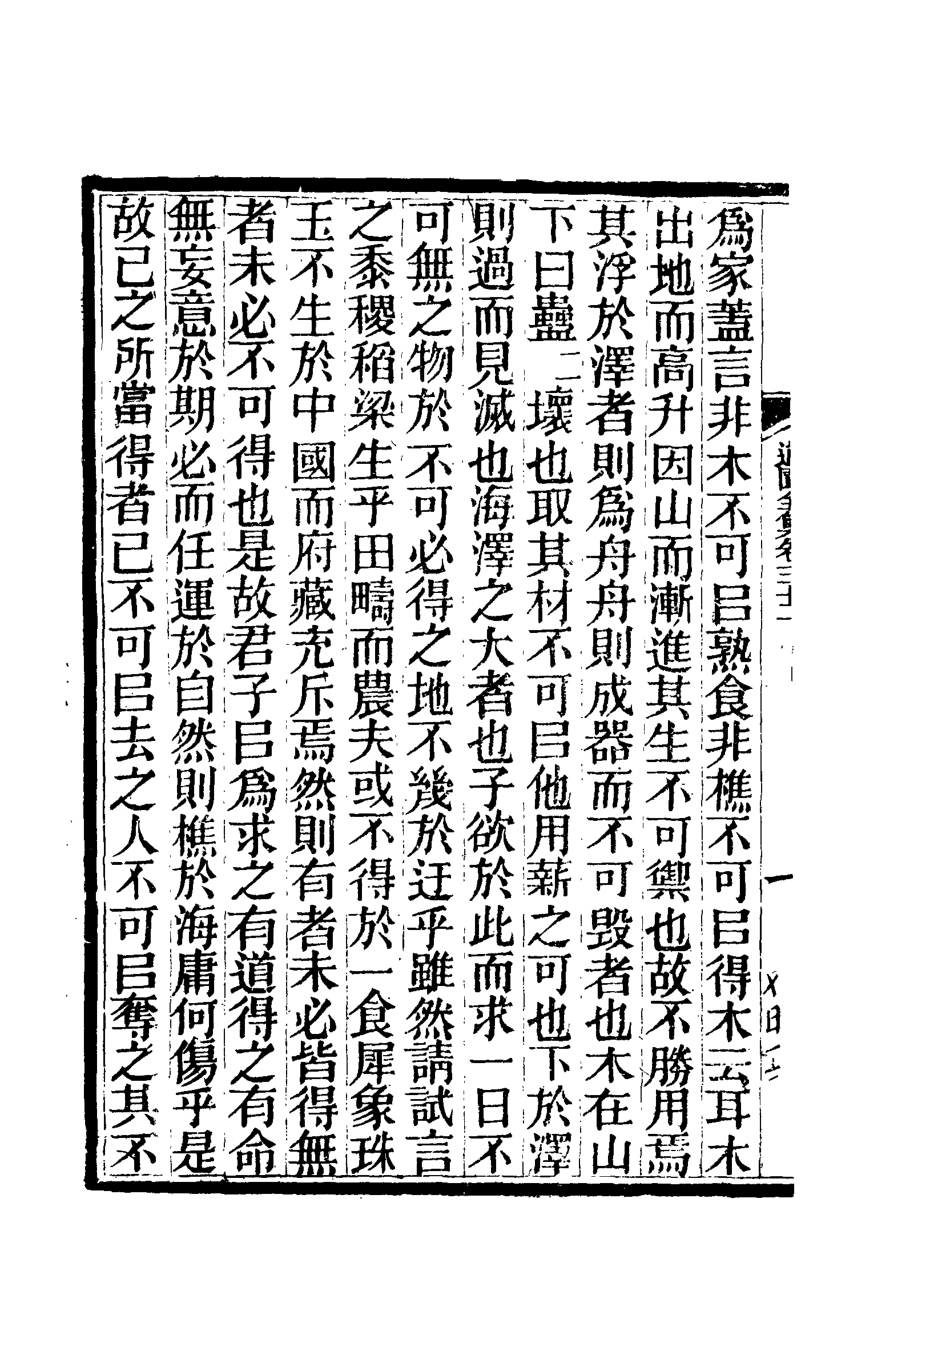 爲家蓋言非木不可㠯熟食非樵不可㠯得木云耳木
出地而高升因山而漸進其生不可禦也故不勝用焉
其浮於澤者則爲舟舟則成器而不可毁者也木在山
下曰蠱二壞也取其材不可㠯他用薪之可也下於澤
則過而見滅也海澤之大者也子欲於此而求一日不
可無之物於不可必得之地不幾於迂乎雖然請試言
之黍稷稻粱生乎田疇而農夫或不得於一食犀象珠
玉不生於中國而府藏充斥焉然則有者未必皆得無
者未必不可得也是故君子㠯爲求之有道得之有命
無妄意於期必而任運於自然則樵於海庸何傷乎是
故已之所當得者已不可㠯去之人不可㠯奪之其不